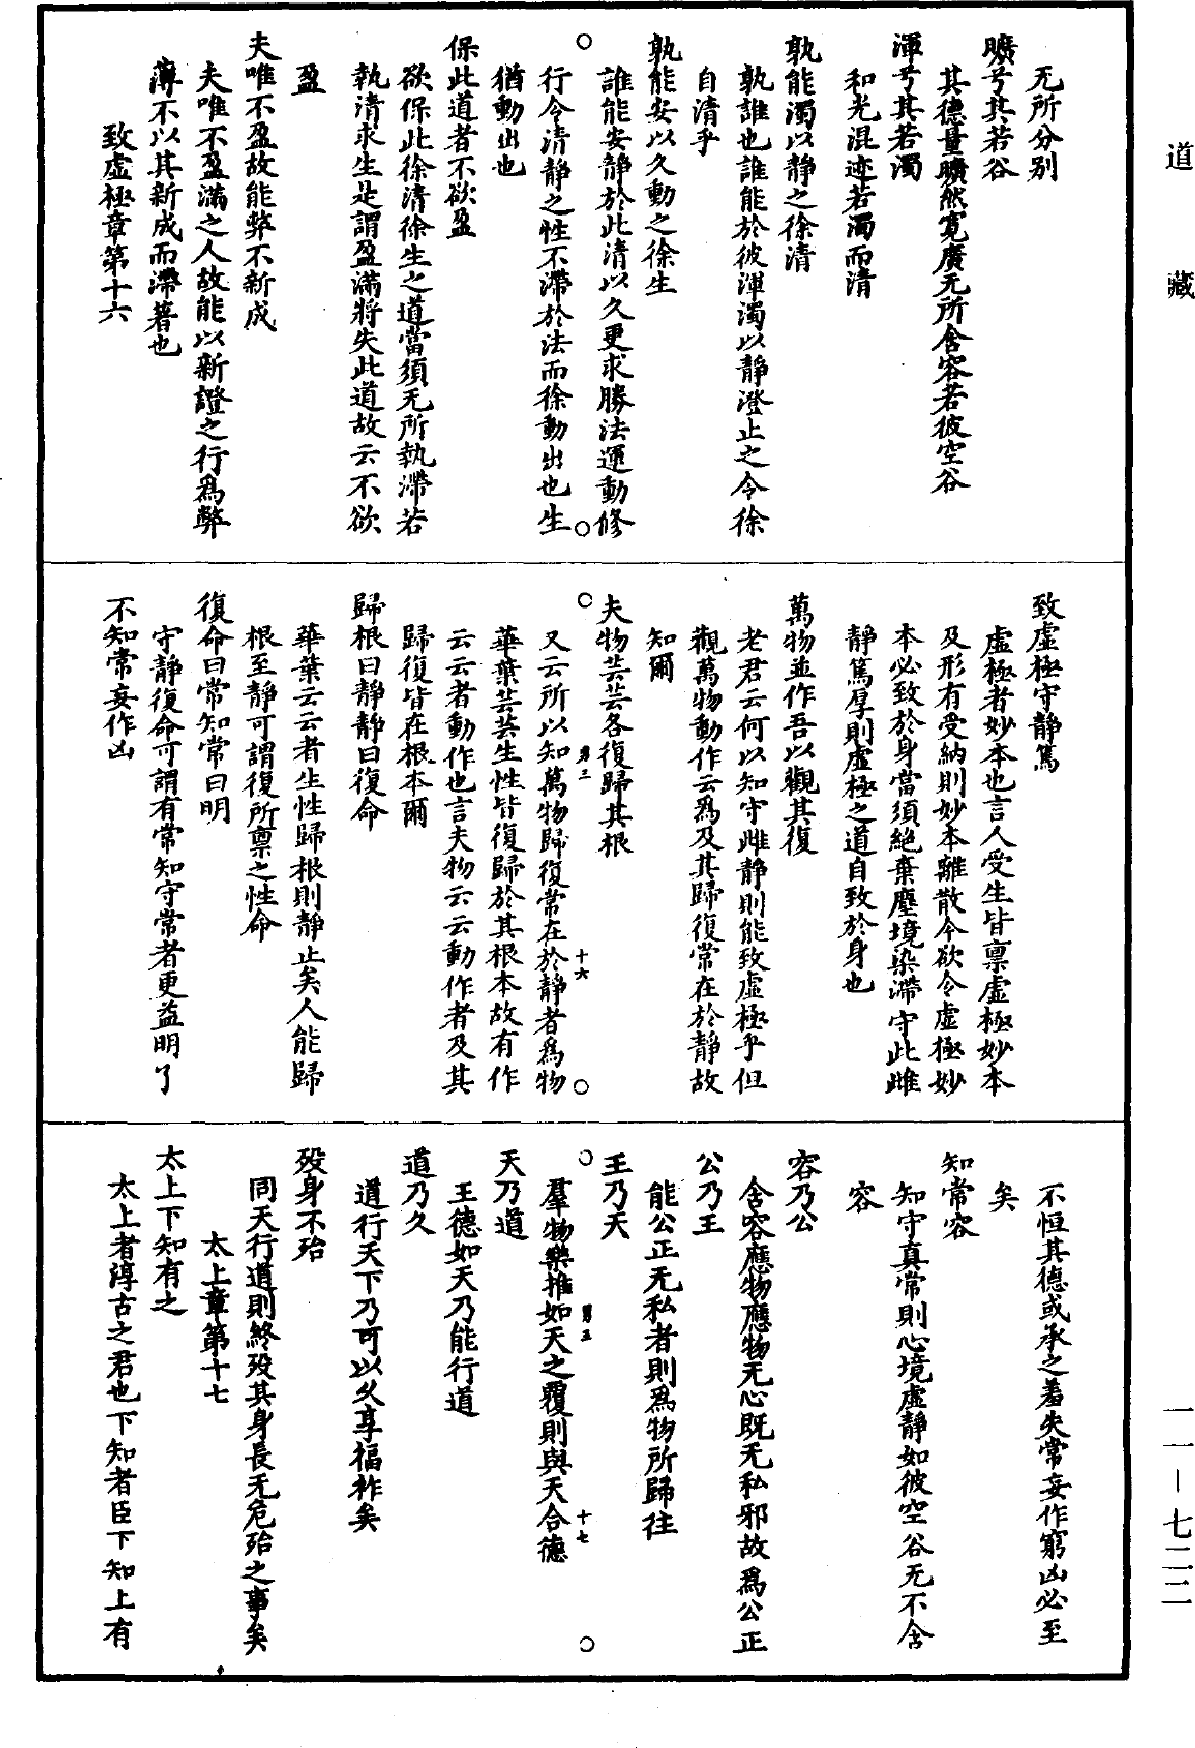 道藏
无所分別
曠兮其若谷
其德量曠然寬廣无所含容若彼空谷
渾兮其若濁
和光混迹若濁而清
孰能濁以靜之徐清
孰誰也誰能於彼渾濁以靜澄止之令徐
自清乎
孰能安以久動之徐生
誰能安靜於此清以久更求勝法運動修
行令清靜之性不滯於法而徐動出也生
猶動出也
保此道者不欲盈
欲保此徐清徐生之道當須无所執滯若
執清求生是謂盈滿將失此道故云不欲
盈
夫唯不盈故能弊不新成
夫唯不盈滿之人故能以新證之行為弊
薄不以其新成而滯著也
致虛極章第十六
致虛極守靜篤
虛極者妙本也言人受生皆禀虛極妙本
及形有受納則妙本離散今欲令虛極妙
本必致於身當須絕棄塵境染滯守此雌
靜篤厚則虛極之道自致於身也
萬物並作吾以觀其復
老君云何以知守雌靜則能致虛極乎但
觀萬物動作云為及其歸復常在於靜故
知爾
夫物芸芸各復歸其根
十六
又云所以知萬物歸復常在於靜者為物
華葉芸芸生性皆復歸於其根本故有作
云云者動作也言夫物云云動作者及其
歸復皆在根本爾
歸根曰靜靜曰復命
華葉云云者生性歸根則靜止矣人能歸
根至靜可謂復所禀之性命
復命曰常知常曰明
守靜復命可謂有常知守常者更益明了
不知常妄作凶
不恒其德或承之羞失常妄作窮凶必至
矣
知常容
知守真常則心境虛靜如彼空谷无不含
容
容乃公
含容應物應物无心既无私邪故為公正
公乃王
能公正无私者則為物所歸往
王乃天
十七
羣物樂推如天之覆則與天合德
天乃道
王德如天乃能行道
道乃久
道行天下乃可以久享福祚矣
歿身不殆
同天行道則終歿其身長无危殆之事矣
太上章第十七
太上下知有之
太上者淳古之君也下知者臣下知上有
一一－七二二